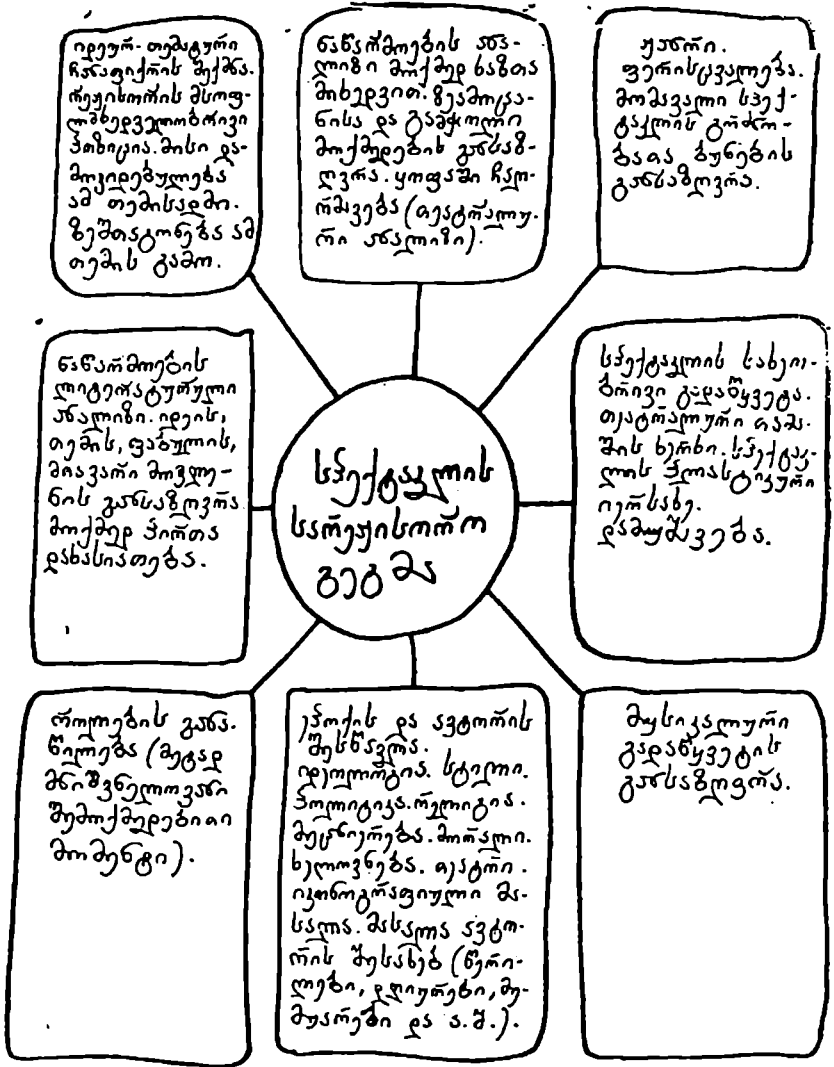 იდეურ-თემატური
ჩანაფიქრის შექმნა.
რეჟისორის მსოფ-
ლმხედველობრივი
პოზიცია. მისი და-
მოკიდებულება
ამ თემისადმი.
ზეშთაგონება ამ
თემის გამო.
ნაწარმოების ანა-
ლიზი მოქმედ ხაზთა
მიხედვით. ზეამოცა-
ნისა და გამჭოლი
მოქმედების განსაზ-
ღვრა. ყოფაში ჩაღ-
რმავება (თეატრალუ-
რი ანალიზი).
ჟანრი.
ფერისცვალება.
მომავალი სპექ-
ტაკლის გრძნო-
ბათა ბუნების
განსაზღვრა.
ნაწარმოების
ლიტერატურული
ანალიზი. იდეის,
თემის, ფაბულის,
მთავარი მოვლე-
ნის განსაზღვრა
მოქმედ პირთა
დახასიათება.
სპექტაკლის
სარეჟისორო
გეგმა
სპექტაკლის სახეო-
ბრივი გადაწყვეტა.
თეატრალური თამა-
შის ხერხი. სპექტაკ-
ლის პლასტიკური
იერსახე.
დამუშავება.
როლების განა-
წილება (მეტად
მნიშვნელოვანი
შემოქმედებითი
მომენტი).
ეპოქის და ავტორის
შესწავლა.
იდეოლოგია. სტილი.
პოლიტიკა. რელიგია.
მეცნიერება. მორალი.
ხელოვნება. თეატრი.
იკონოგრაფიული მა-
სალა. მასალა ავტო-
რის შესახებ (წერი-
ლები, დღიურები, მე-
მუარები და ა.შ.).
მუსიკალური
გადაწყვეტის
განსაზღვრა.